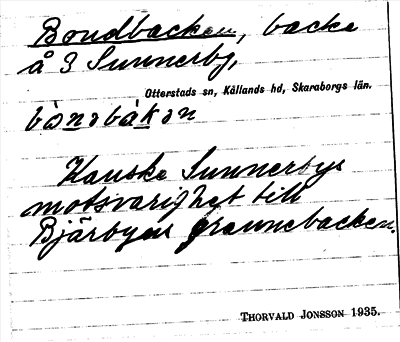 Bondbacken, backe
å 3 Sunnerby,
Otterstads sn, Kållands hd, Skaraborgs län.
bònəbàkən
Kanske Sunnerbys
motsvarighet till
Bjärbyens grannebacken.
THORVALD JONSSON 1935.